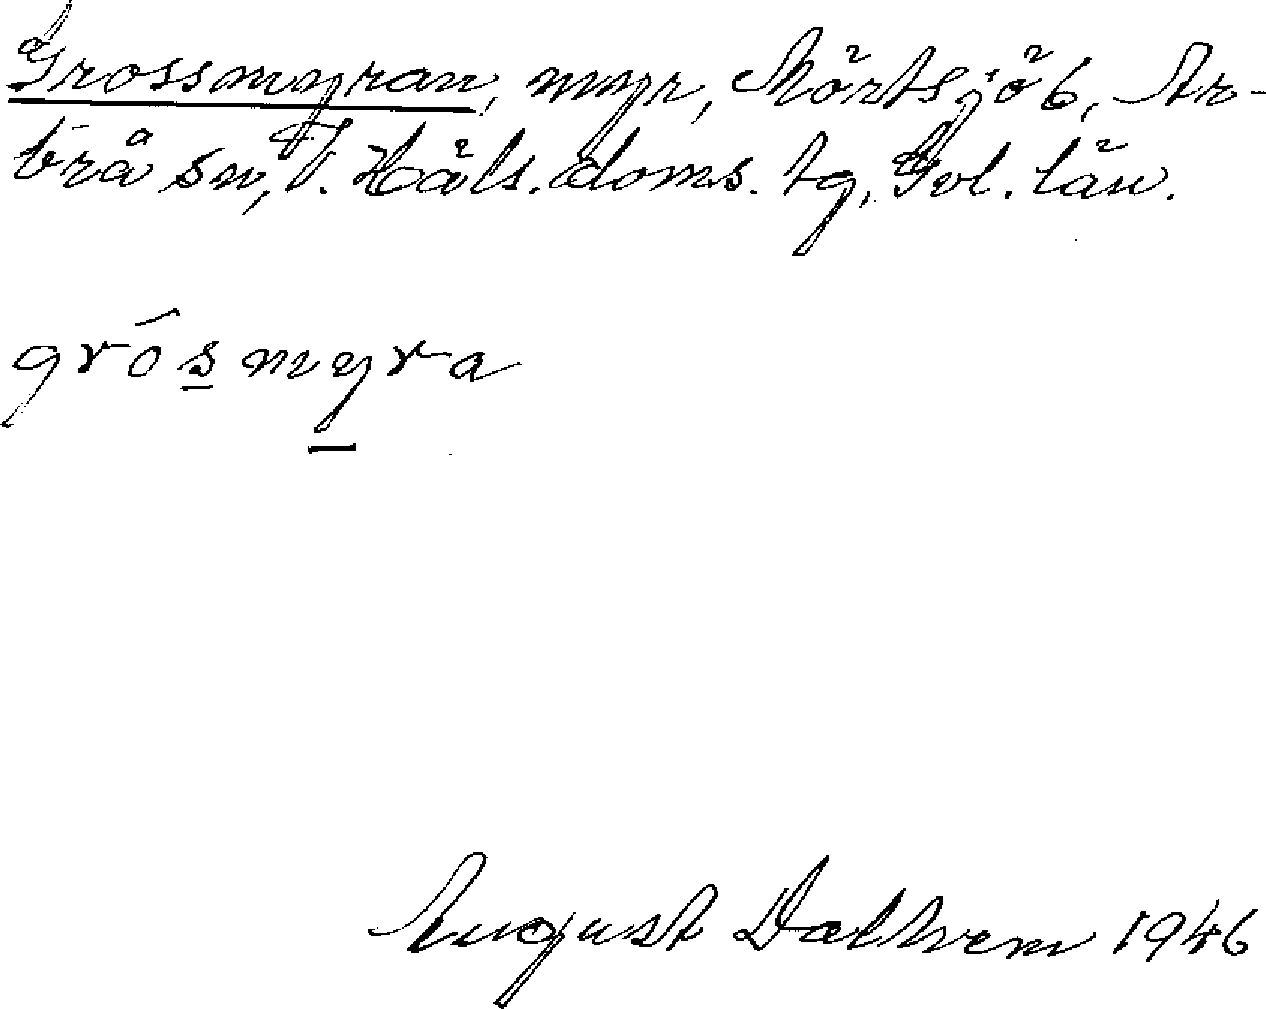 Grossmyran, myr, Mörtsjöb, Ar-
brå sn, V. Häls. doms. tg, Gvl. län.
grósmyra
August Dalhem 1946